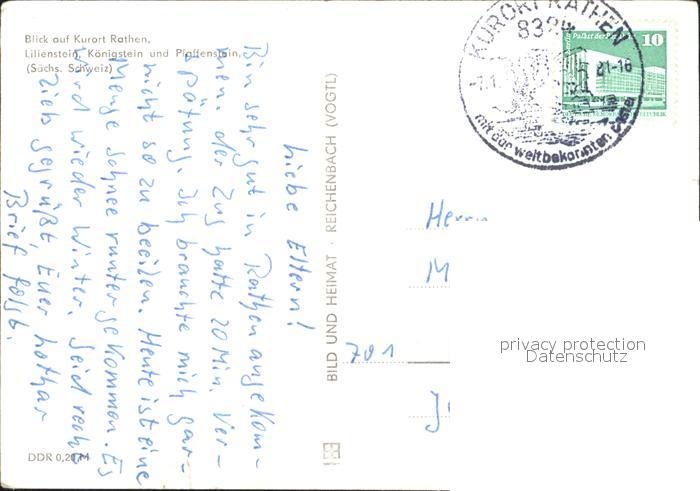 Blick auf Kurort Rathen,
Lilienstein, Königstein und Pfaffenstein,
(Sächs. Schweiz)
Liebe Eltern!
Bin sehr gut in Rathen angekom-
men. Der Zug hatte 20 Min. Ver-
spätung. Ich brauchte mich gar-
nicht so zu beeilen. Heute ist eine
Menge Schnee runtergekommen. Es
wird wieder Winter. Seid recht
lieb gegrüßt, Euer Lothar
Brief folgt.
DDR 0,20 M
BILD UND HEIMAT · REICHENBACH (VOGTL)
KURORT RATHEN
mit der weltbekannten Bastei
10
Herrn
M
701
J
privacy protection
Datenschutz